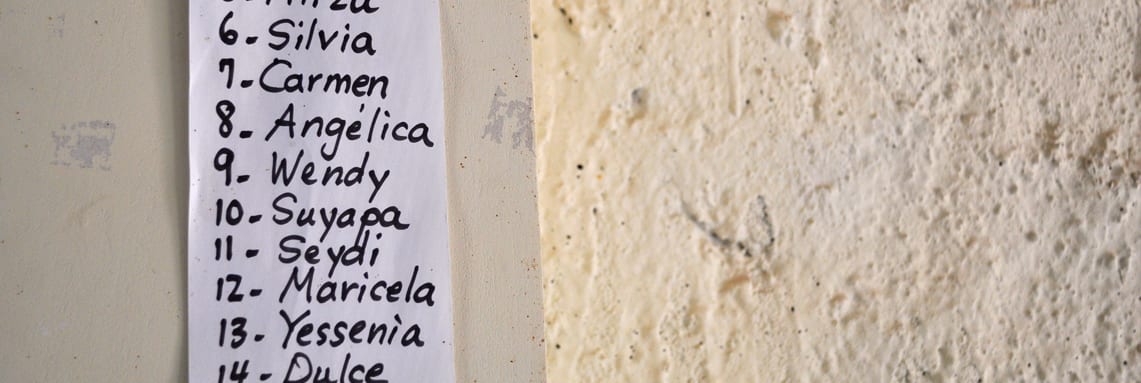 6- Silvia
7- Carmen
8- Angélica
9- Wendy
10- Suyapa
11- Seydi
12- Maricela
13- Yessenia
14- Dulce